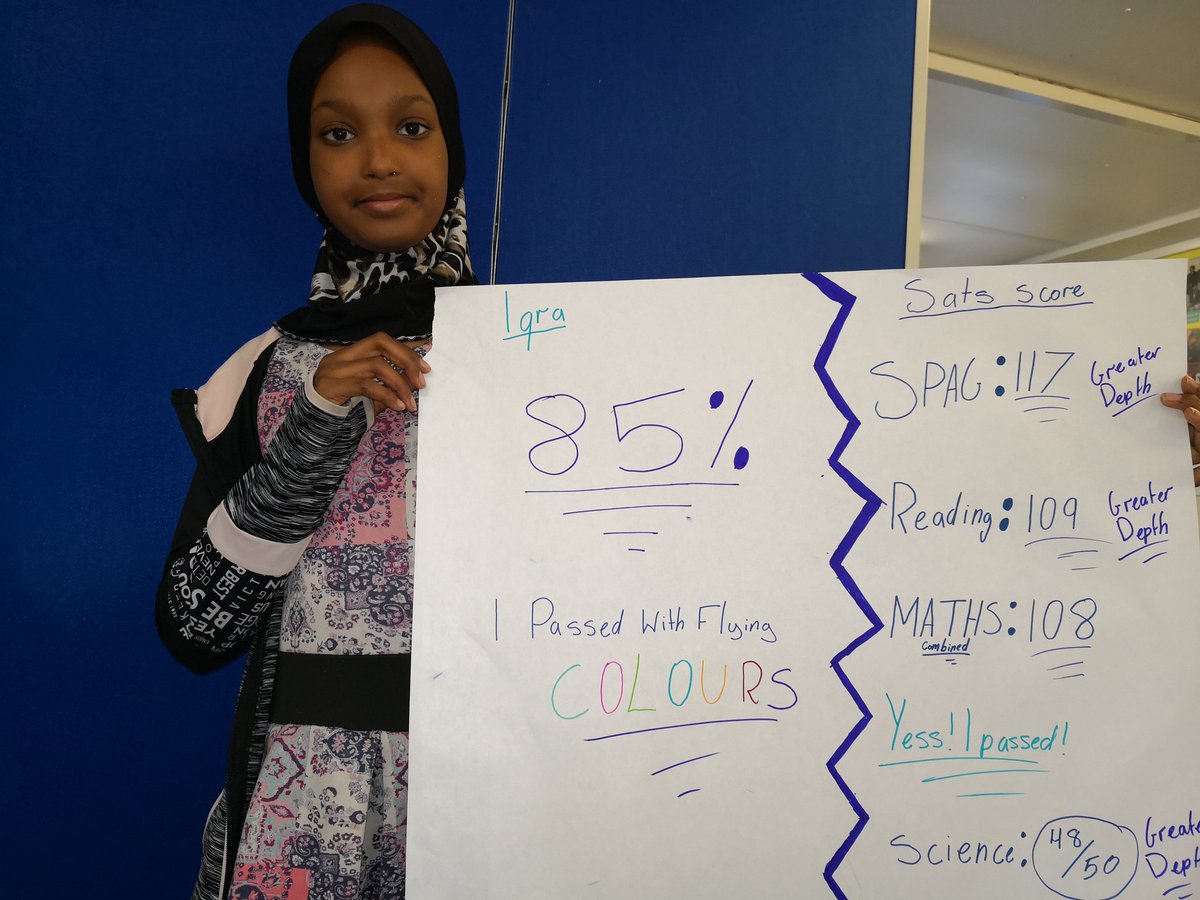 Iqra
85%
I Passed With Flying
COLOURS
Sats score
SPAG: 117 Greater
Depth
Reading: 109 Greater
Depth
MATHS: 108
Combined
Yess! I passed!
Science: 48/50
Depth
BEST
BE
VICT